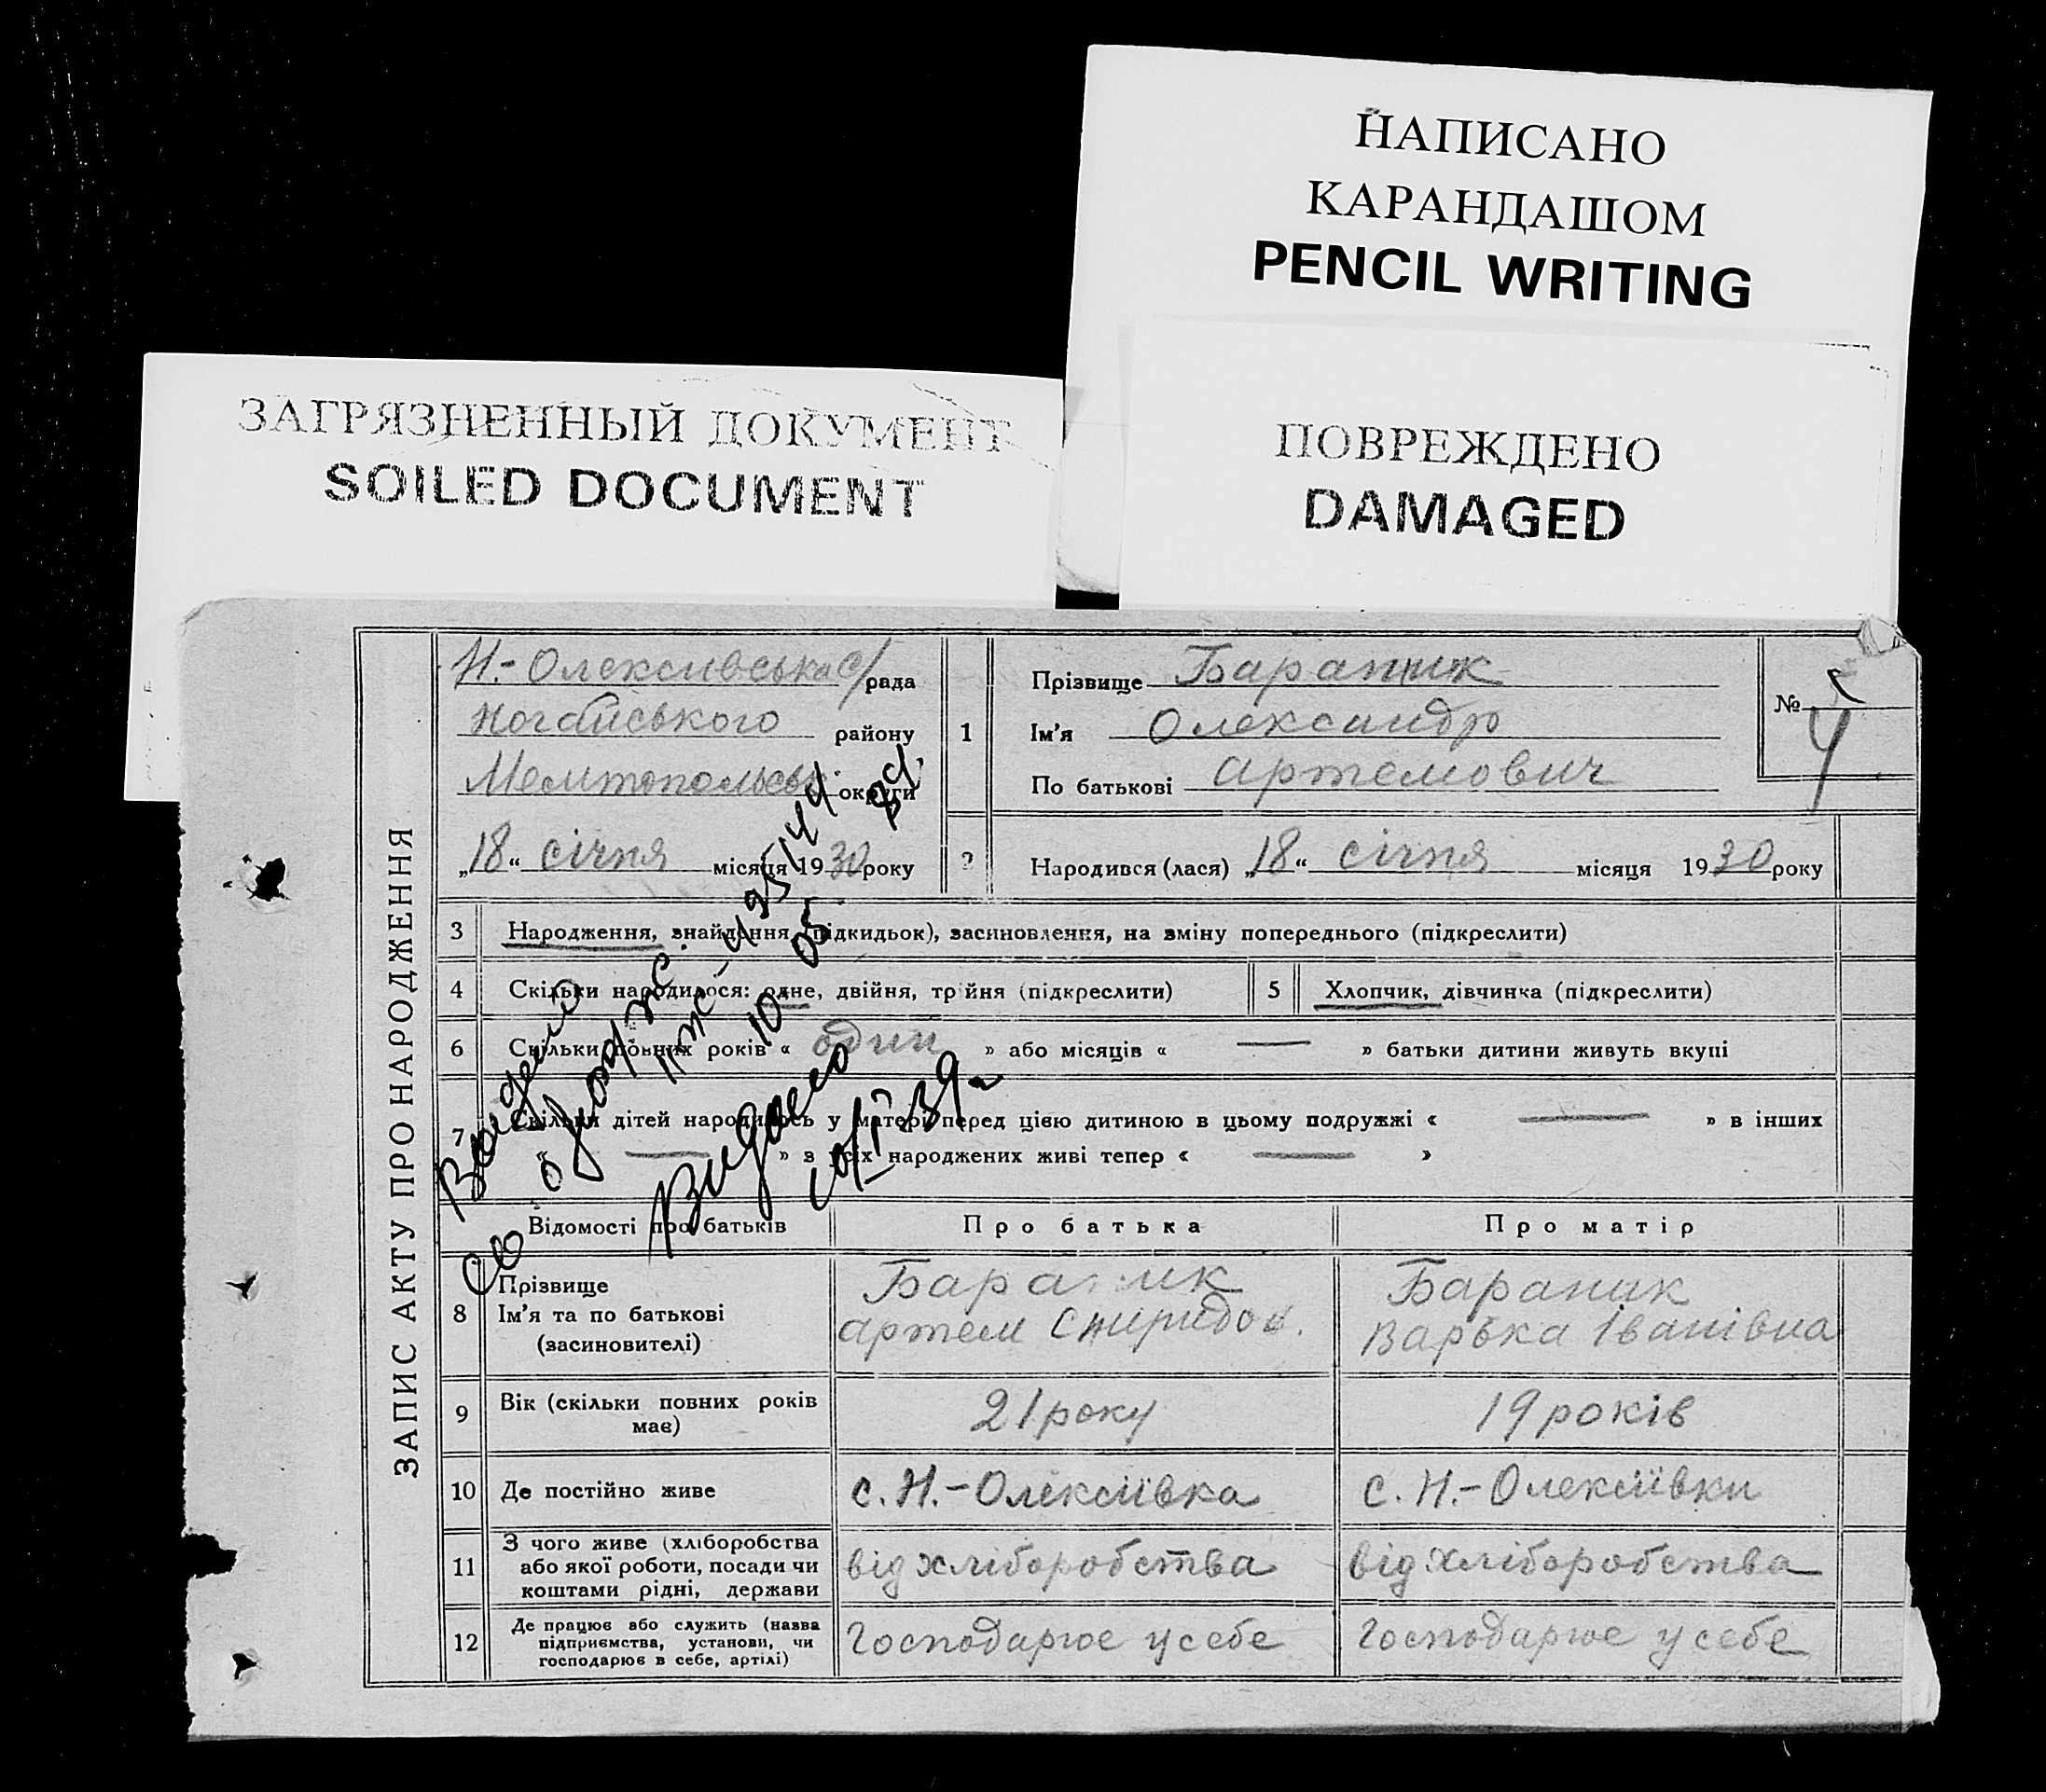 НАПИСАНО
КАРАНДАШОМ
PENCIL WRITING
ЗАГРЯЗНЕННЫЙ ДОКУМЕНТ
SOILED DOCUMENT
ПОВРЕЖДЕНО
DAMAGED
ЗАПИС АКТУ ПРО НАРОДЖЕННЯ
Н.-Олексиївська с/рада
Ногайського району
Мелітопольськ. округи
„18“ січня місяця 1930 року
1
Прізвище Бараник
Ім'я Олександр
По батькові Артемович
№ 4
2 Народився (лася) „18“ січня місяця 1930 року
3 Народження, знайдення (підкидьок), засиновлення, на зміну попереднього (підкреслити)
4 Скільки народилося: одне, двійня, трійня (підкреслити)
5 Хлопчик, дівчинка (підкреслити)
6 Скільки повних років « один » або місяців « — » батьки дитини живуть вкупі
7 Скільки дітей народилось у матері перед цією дитиною в цьому подружжі « — » в інших
« — » в усіх народжених живі тепер « — »
Видано
Видано
39
Відомості про батьків
Про батька
Про матір
8 Прізвище
Ім'я та по батькові
(засиновителі)
Бараник
Артем Спиридов.
Бараник
Варька Іванівна
9 Вік (скільки повних років
має)
21 року
19 років
10 Де постійно живе
с. Н.-Олексіївка
с. Н.-Олексіївки
11 З чого живе (хліборобства
або якої роботи, посади чи
коштами рідні, держави
від хліборобства
від хліборобства
12 Де працює або служить (назва
підприємства, установи, чи
господарює в себе, артілі)
Господарює у себе
Господарює у себе